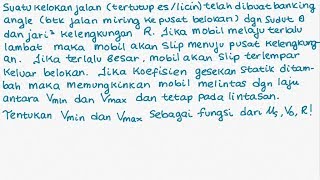 Suatu kelokan jalan (tertutup es/licin) telah dibuat banking
angle (btk jalan miring ke pusat belokan) dgn Sudut θ
dan jari² kelengkungan R. Jika mobil melaju terlalu
lambat maka mobil akan Slip menuju pusat kelengkung
an. Jika terlalu Besar, mobil akan Slip terlempar
keluar belokan. Jika Koefisien gesekan Statik ditam-
bah maka memungkinkan mobil melintas dgn laju
antara Vmin dan Vmax dan tetap pada lintasan.
Tentukan Vmin dan Vmax Sebagai fungsi dari μs, V₀, R!